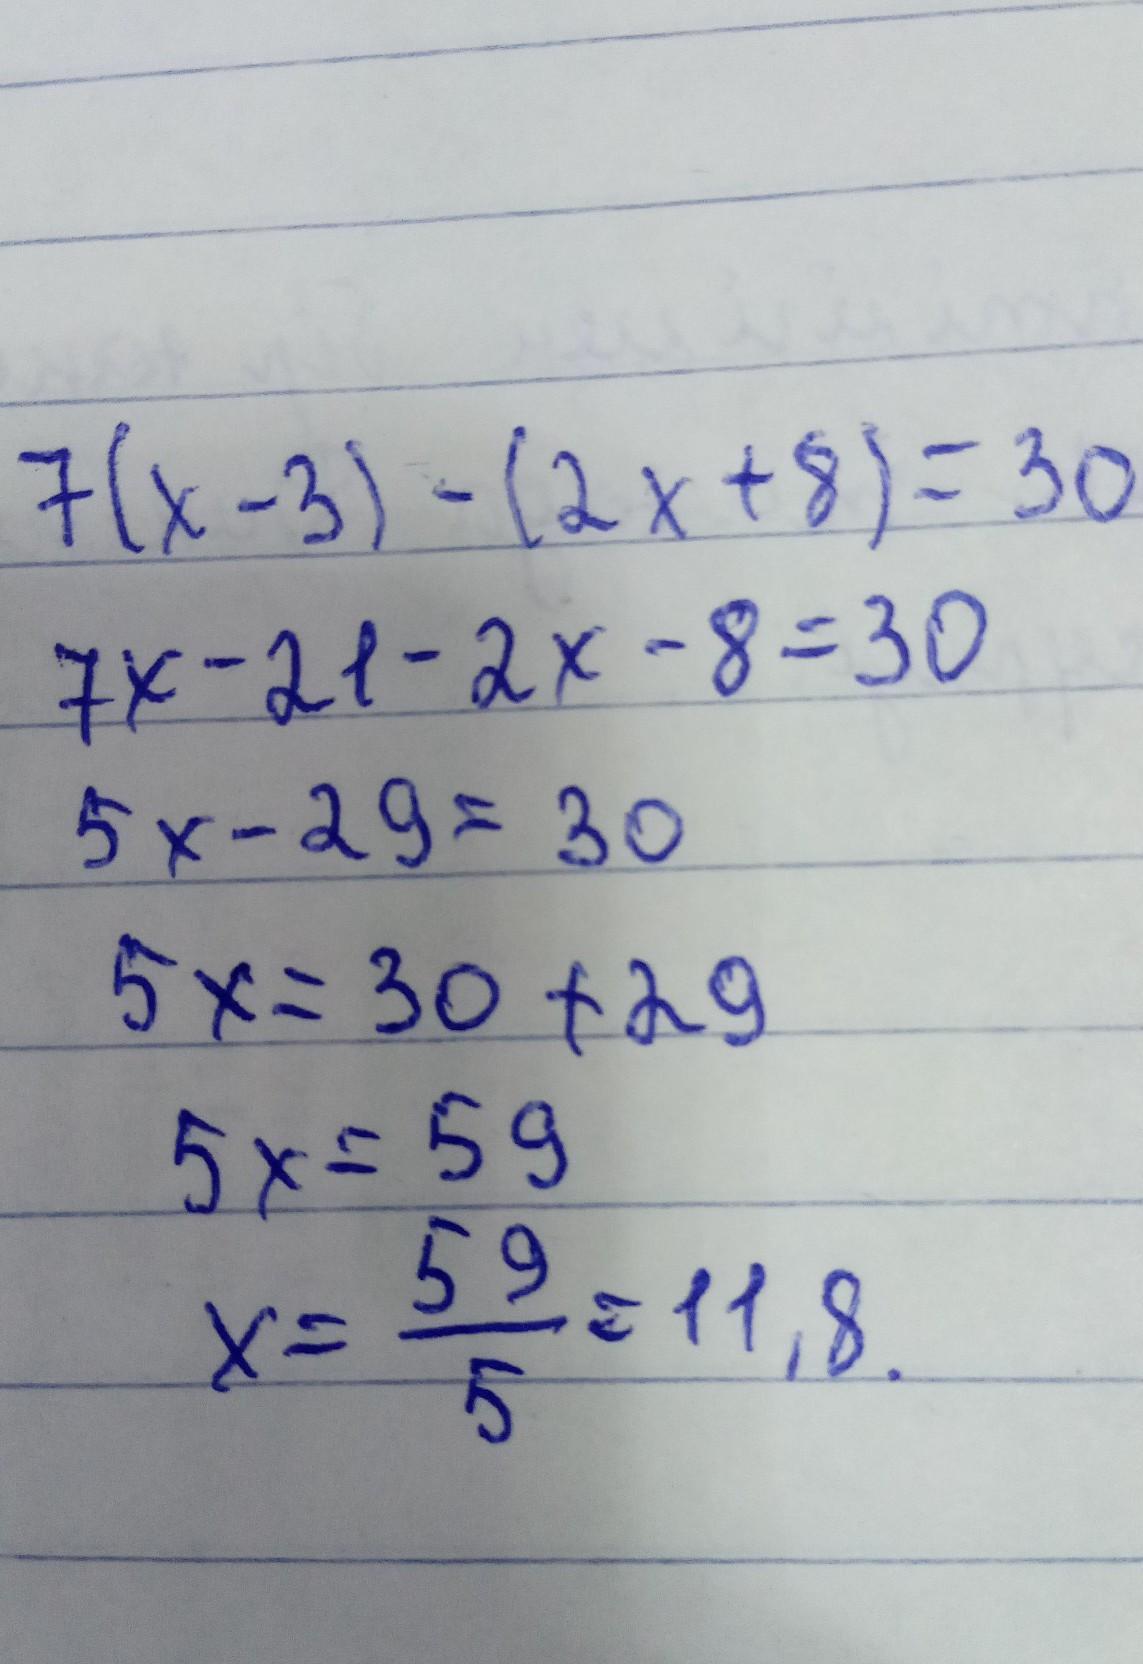 7(x-3) - (2x+8) = 30
7x-21-2x-8=30
5x-29=30
5x=30+29
5x=59
x= 59/5 =11,8.